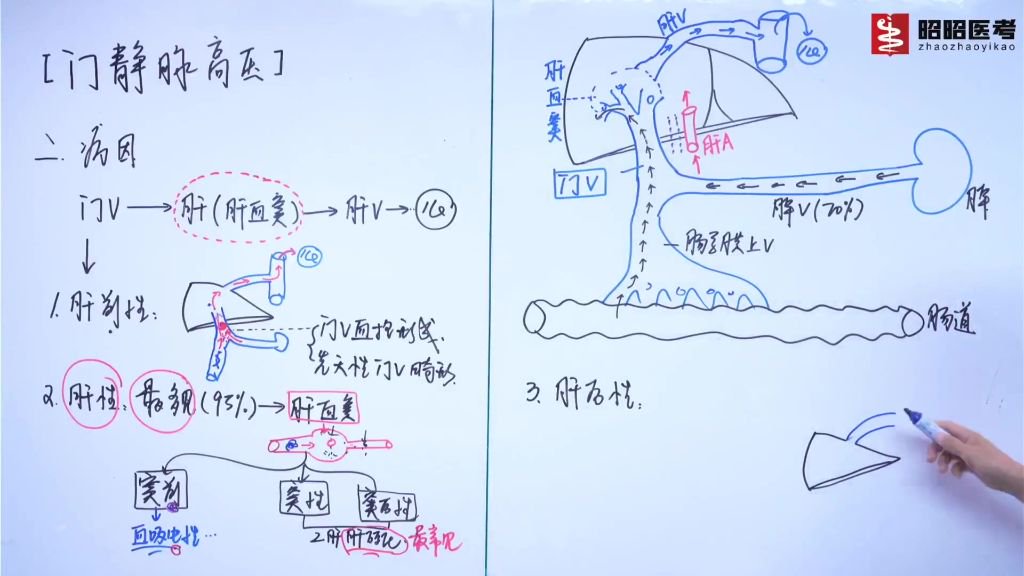 [门静脉高压]
二. 病因
门V → 肝(肝血窦) → 肝V → 心
1. 肝前性:
心
门V血栓形成.
先天性门V畸形.
2. 肝性: 最多见(95%) → 肝血窦
窦前
窦性
窦后性
血吸虫性…
乙肝肝硬化
最常见
昭昭医考
zhaozhaoyikao
肝V
心
肝血窦
肝A
门V
脾V(20%)
脾
肠系膜上V
肠道
3. 肝后性: